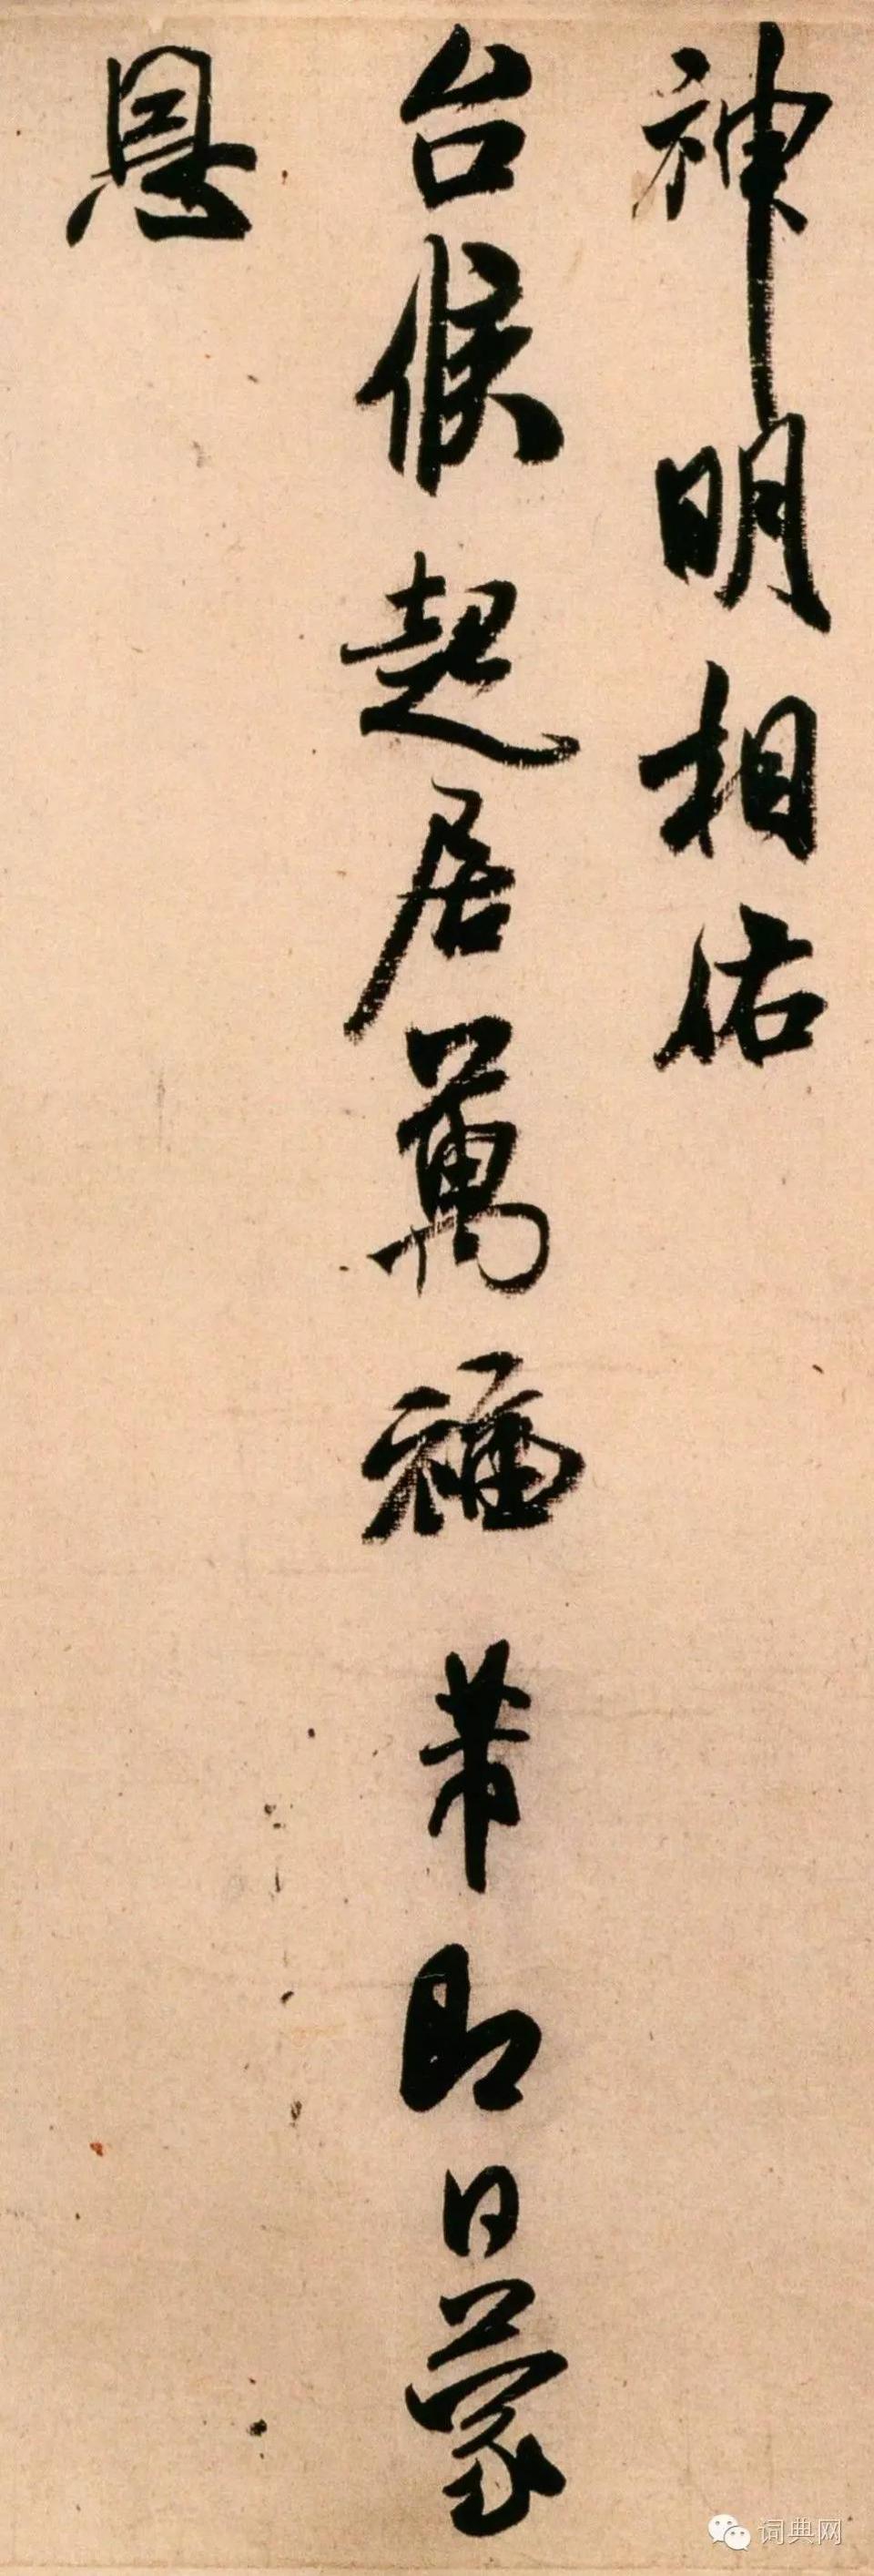 神明相佑
台候起居萬福芾即日蒙
恩
词典网